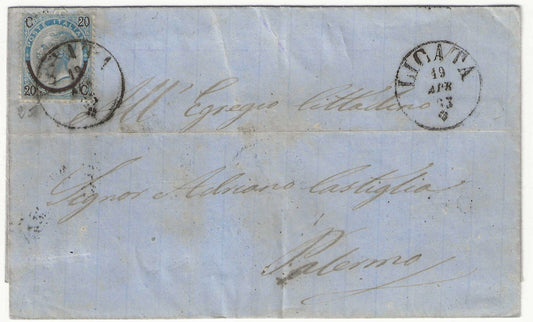 C 20
POSTE ITALIANE
20 C
LICATA
19
APR
All' Egregio Cittadino
Signor Adriano Castiglia
Palermo